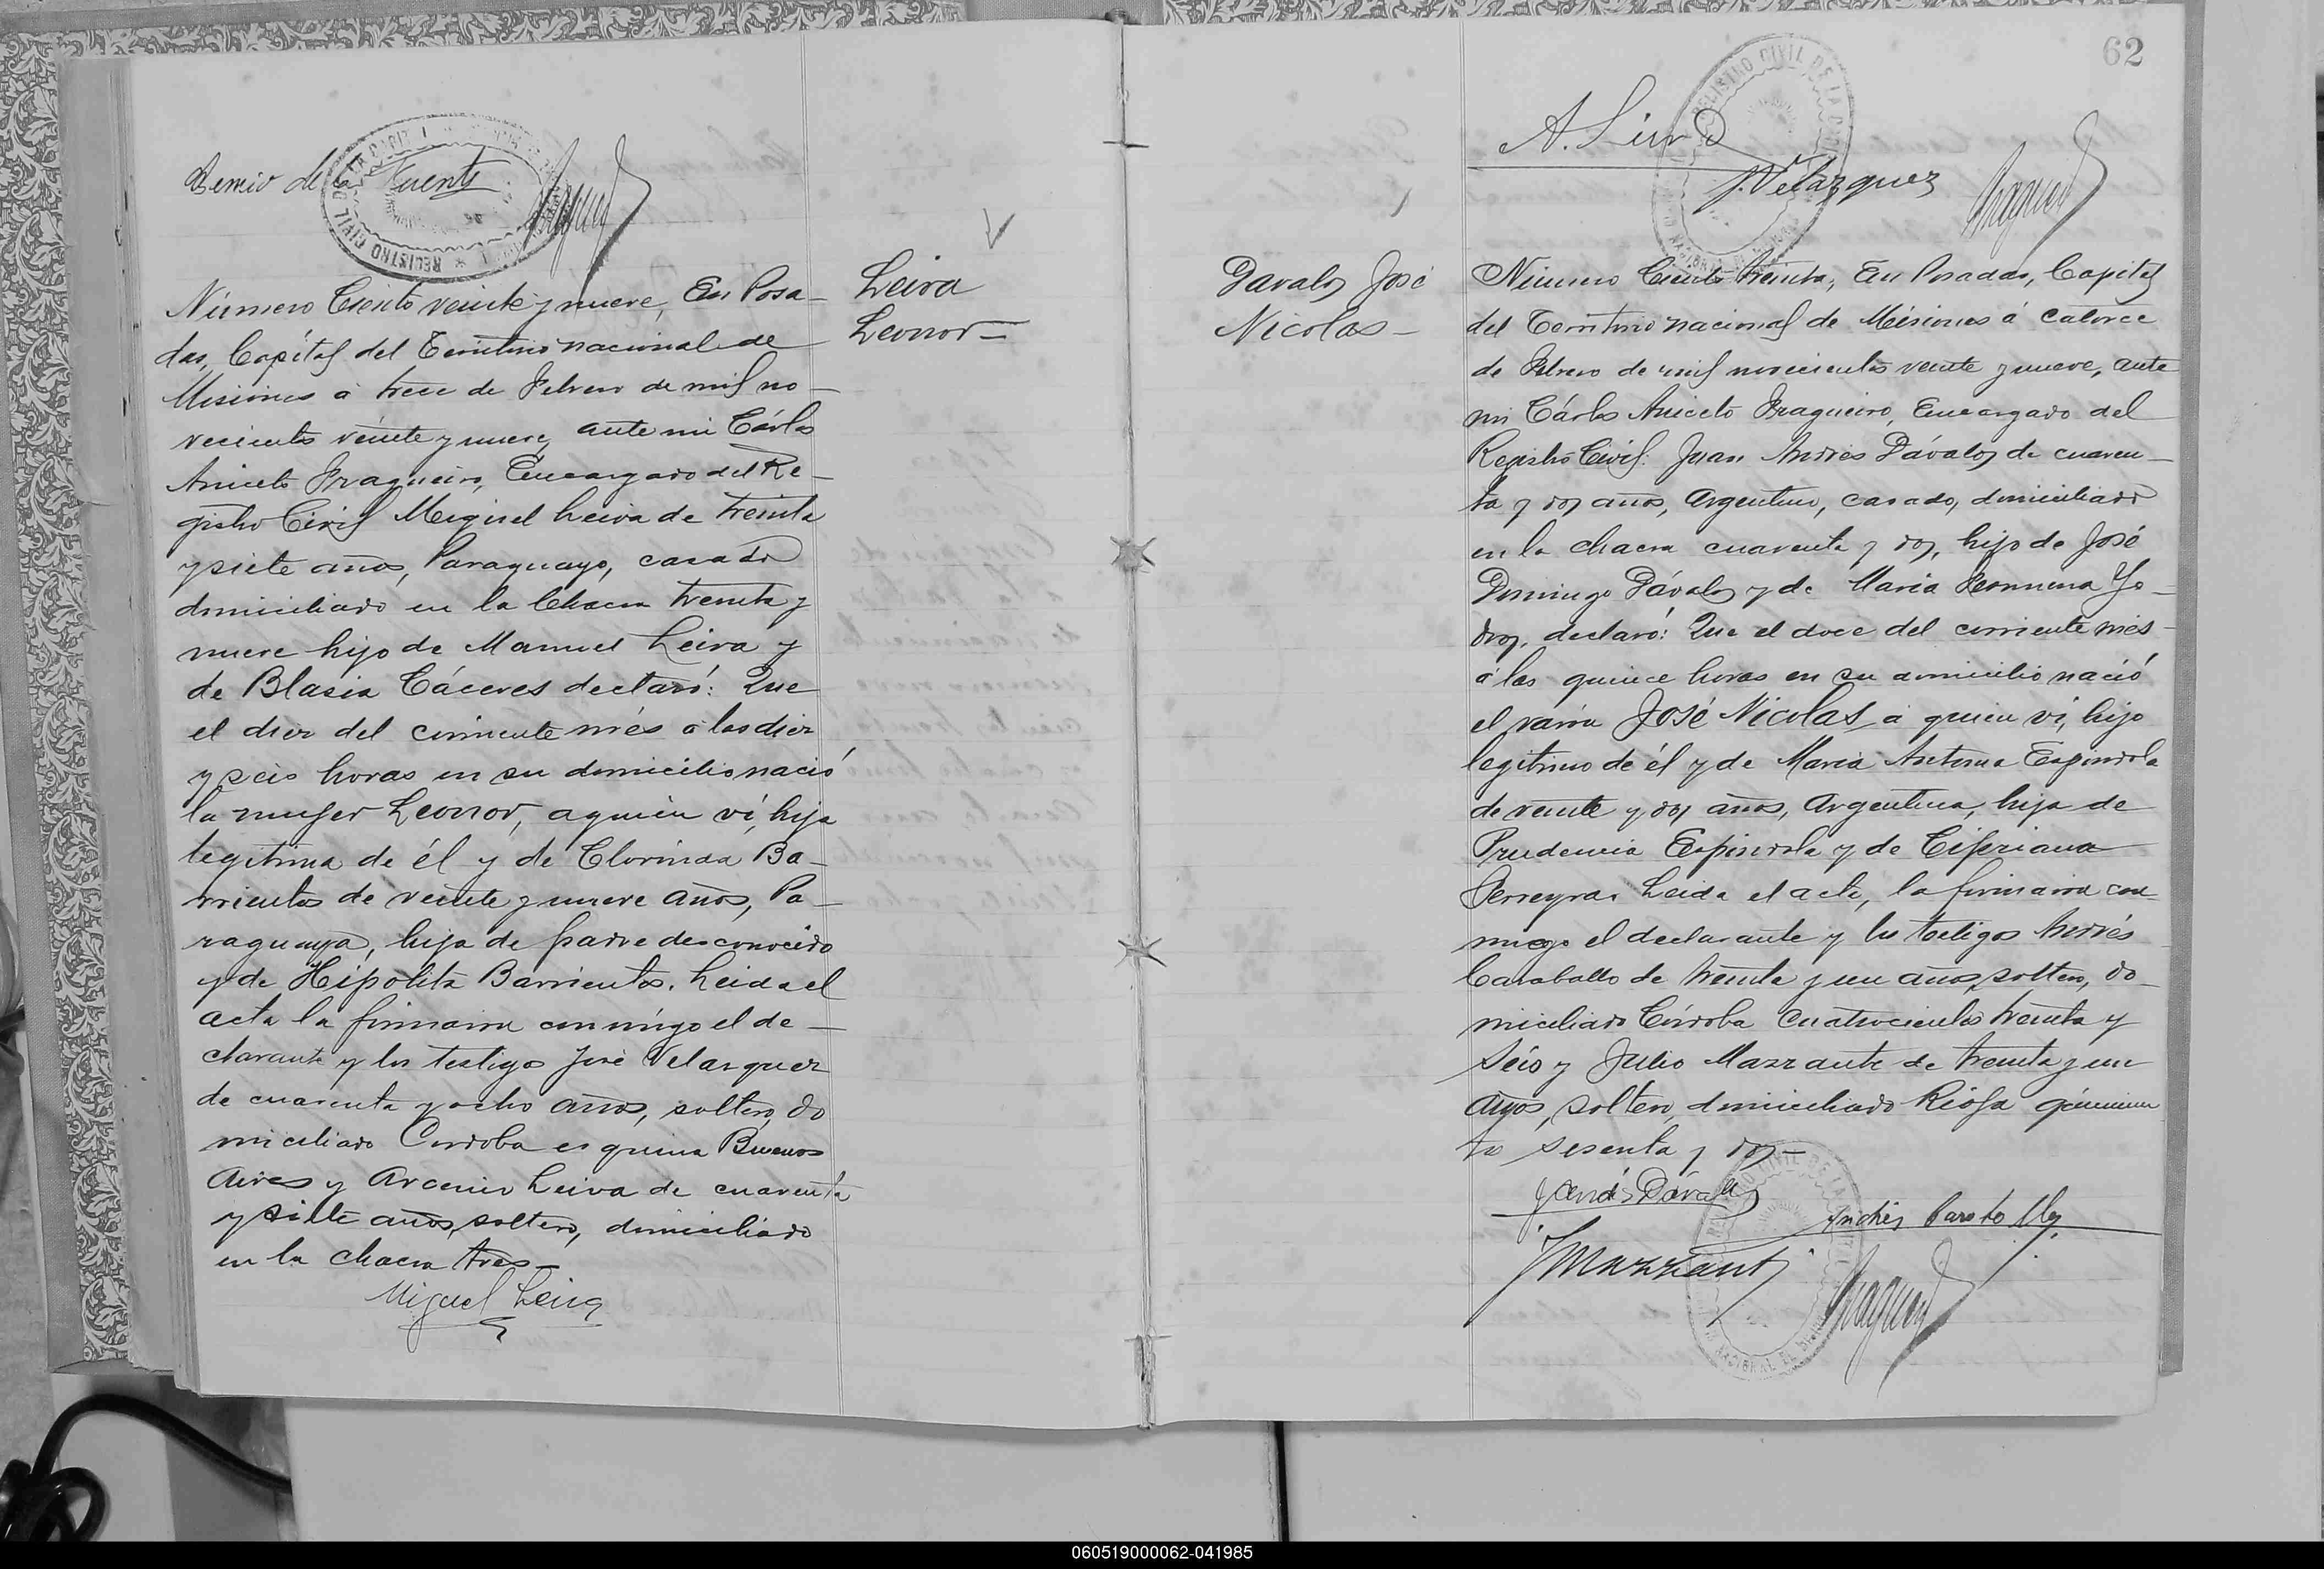 Remio de la Fuente
Número Ciento veinte y nueve, En Posa-
das, Capítal del Territorio nacional de
Misiones á trece de Febrero de mil no-
vecientos veinte y nueve, ante mi Cárlos
Aniceto Fragueiro, Encargado del Re-
gistro Civil Miguel Leiva de treinta
y siete años, Paraguayo, casado
domiciliado en la Chacra treinta y
nueve hijo de Manuel Leiva y
de Blasia Cáceres declaró: Que
el diez del corriente més á las diez
y seis horas en su domicilio nació
la mujer Leonor, a quien ví, hija
legítima de él y de Clorinda Ba-
rrientos de veinte y nueve años, Pa-
raguaya, hija de padre desconocido
y de Hipólita Barrientos. Leida el
acta la firmaron conmigo el de-
clarante y los testigos José Velazquez
de cuarenta y ocho años, soltero, do
miciliado Córdoba esquina Buenos
Aires y Arcenio Leiva de cuarenta
y siete años, soltero, domiciliado
en la chacra tres-
Miguel Leiva
Leiva
Leonor-
62
A. Leiva
J. Velazquez
REGISTRO CIVIL DE LA
Davalos José
Nicolas-
Número Ciento treinta, En Posadas, Capital
del Territorio nacional de Misiones á catorce
de Febrero de mil novecientos veinte y nueve, ante
mi Cárlos Aniceto Fragueiro, Encargado del
Registro Civil. Juan Andrés Dávalos de cuaren-
ta y dos años, Argentino, casado, domiciliado
en la chacra cuarenta y dos, hijo de José
Domingo Dávalos y de Maria Go-
doy, declaró: Que el doce del corriente més
á las quince horas en su domicilio nació
el varón José Nicolas á quien ví, hijo
legítimo de él y de Maria Antonia Espindola
de veinte y dos años, Argentina, hija de
Prudencia Espindola y de Cipriana
Ferreyra. Leida el acta, la firmaron con
migo el declarante y los testigos Andrés
Caraballo de treinta y un años, soltero, do-
miciliado Córdoba cuatrocientos treinta y
seis y Julio Mazzante de treinta y un
años, soltero, domiciliado Rioja quinien
to sesenta y dos-
J Andrés Dávalos
Andrés
J Mazzanti
060519000062-041985